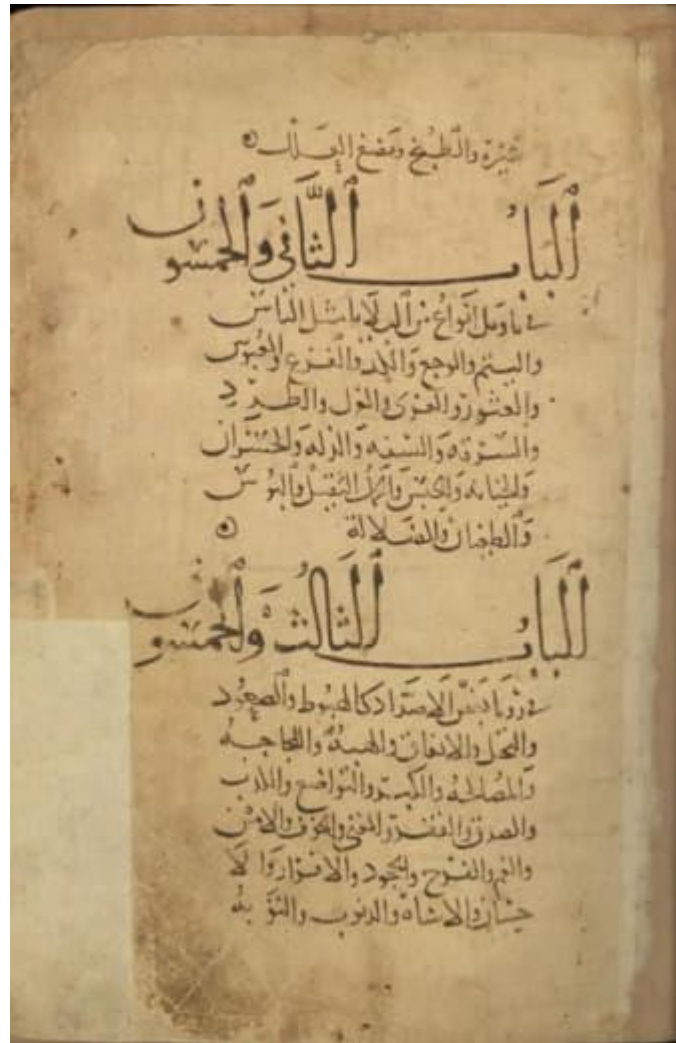 والطبخ ومضغ العلك
الباب الثاني والخمسون
في تاويل انواع من البلايا مثل الباس
واليتم والوجع والفزع والعبوس
والعثور والعرى والعزل والطرد
والسرقة والسفه والذله والخسران
والخيانه والحبس والحمل الثقيل والبوس
والطغيان والضلالة
الباب الثالث والخمسون
في رويا بعض الاضداد كالهبوط والصعود
والبخل والانفاق والهبة واللجاجة
والمصالحه والكبر والتواضع والكذب
والصدق والفقر والغنى والخوف والامن
والغم والفرح والجحود والاقرار والا
حسان والاساه والذنوب والتوبة